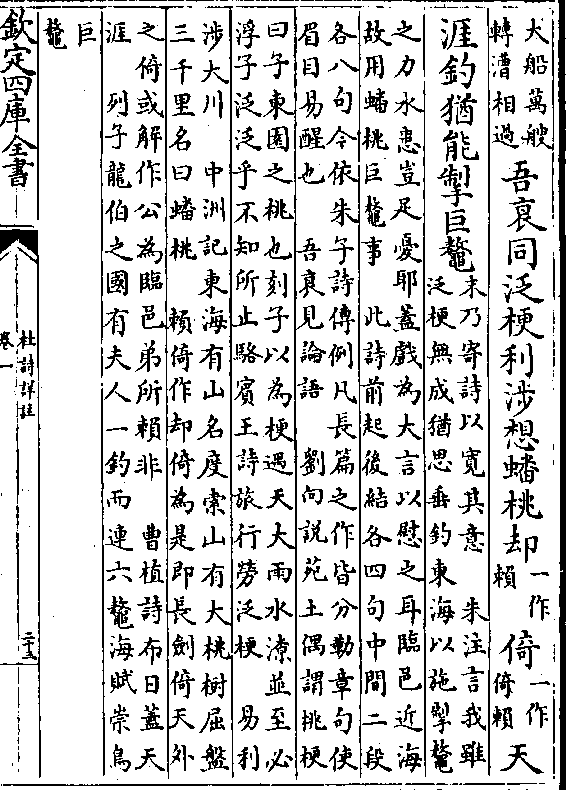 大船萬艘
轉漕相過
吾衰同泛梗利涉想蟠桃却
一作
賴
倚
一作
倚賴
天
涯釣猶能掣巨鼇
末乃寄詩以寛其意 朱注言我雖
泛梗無成猶思垂釣東海以施掣鼇
之力水患豈足憂耶蓋戲為大言以慰之耳臨邑近海
故用蟠桃巨鼇事 此詩前起後結各四句中間二段
各八句今依朱子詩傳例凡長篇之作皆分勒章句使
眉目易醒也 吾衰見論語 劉向說苑土偶謂桃梗
曰子東園之桃也刻子以為梗遇天大雨水潦並至必
浮子泛泛乎不知所止駱賓王詩旅行勞泛梗 易利
涉大川 中洲記東海有山名度索山有大桃樹屈盤
三千里名曰蟠桃 賴倚作却倚為是即長劍倚天外
之倚或解作公為臨邑弟所賴非 曹植詩布日蓋天
涯 列子龍伯之國有夫人一釣而連六鼇海賦崇島
巨
鼇
欽定四庫全書
杜詩詳註
卷一
二十五